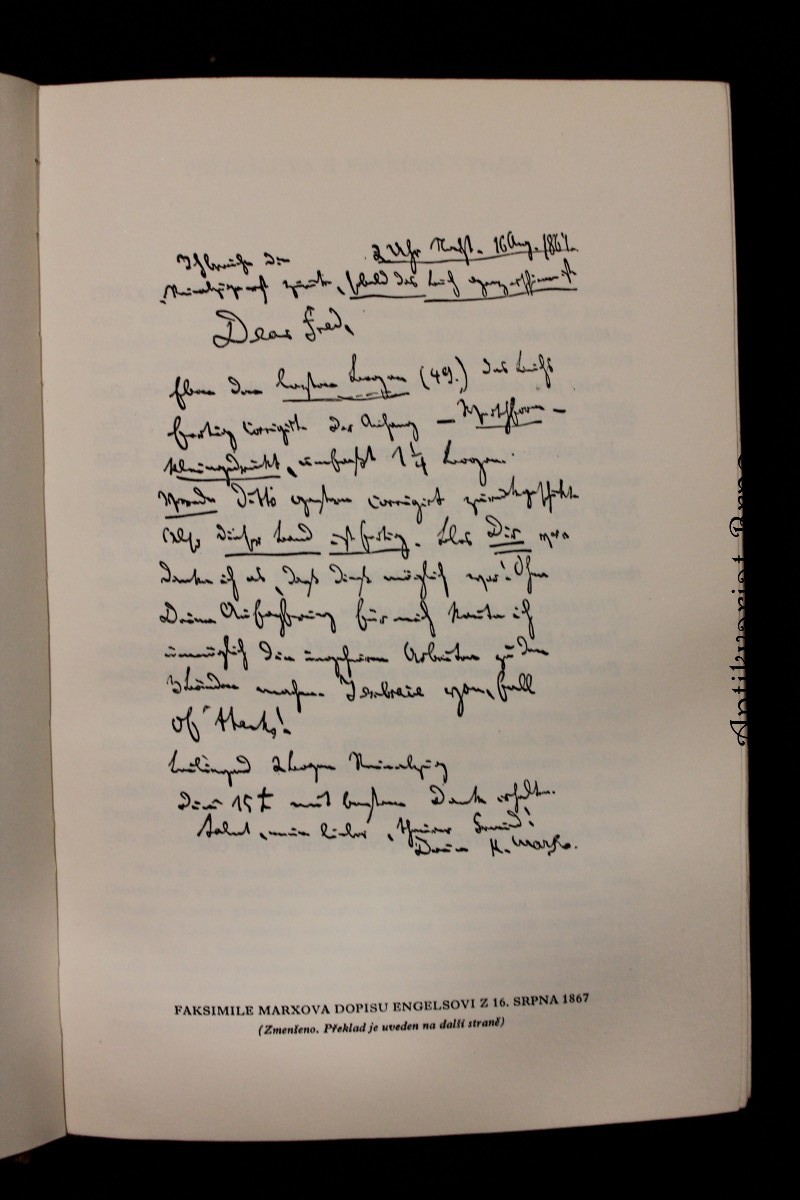 Ich brauche die
2 Uhr Nacht. 16 Aug. 1867.
zurück, sobald das Buch ganz erschienen ist
Dear Fred,
Eben den letzten Bogen (49.) des Buchs
fertig corrigirt. Der Anhang — Werthform —
kleingedruckt, umfaßt 1 1/4 Bogen.
Vorrede ditto gestern corrigirt zurückgeschickt.
Also dieser Band ist fertig. Blos Dir ver-
danke ich es, daß dieß möglich war! Ohne
Deine Aufopferung für mich konnte ich
unmöglich die ungeheuren Arbeiten zu den
3 Bänden machen. I embrace you, full
of thanks!
Beiliegend 2 Bogen Reinabzug
Die 15 £ mit bestem Dank erhalten.
Salut, mein lieber, theurer Freund!
Dein K. Marx.
FAKSIMILE MARXOVA DOPISU ENGELSOVI Z 16. SRPNA 1867
(Zmenšeno. Překlad je uveden na další straně)
Antikvariat Brno